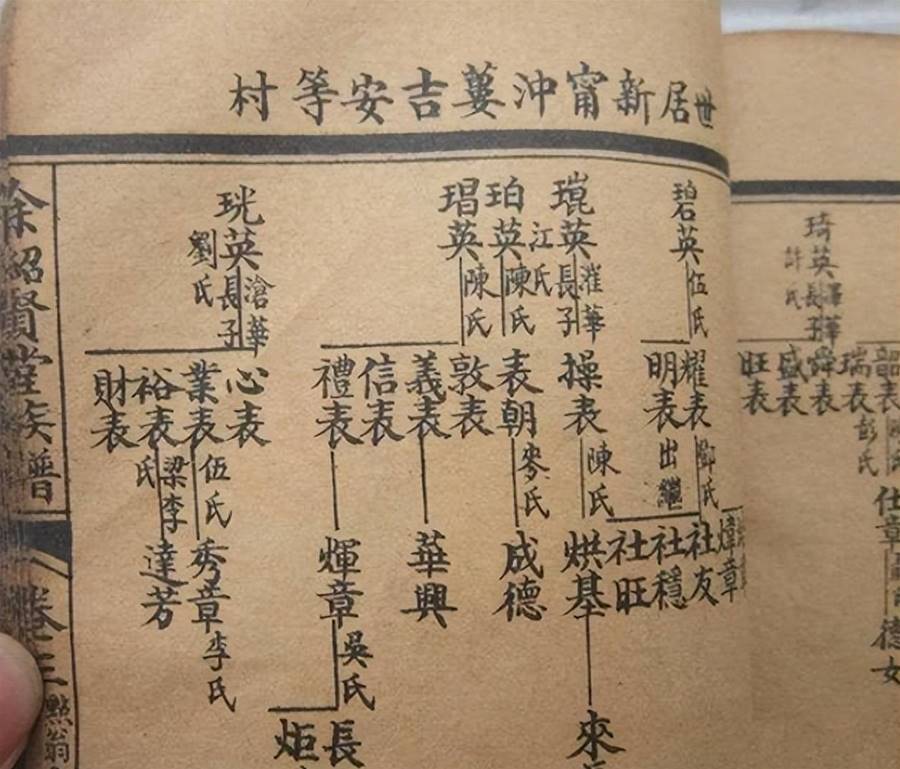 世居新甯沖蔞吉安等村
琦英
許氏
長子
韶表
瑞表
舜表
盛表
旺表
彭氏
仕章
德女
碧英
伍氏
耀表
鄧氏
明表
出繼
煒章
社友
社穩
社旺
琨英
江氏
長子
灌華
操表
陳氏
烘基
來
珀英
陳氏
表朝
麥氏
成德
琩英
陳氏
敦表
義表
信表
禮表
華興
煇章
吳氏
長
炬
珖英
劉氏
長子
滄華
心表
業表
伍氏
秀章
李氏
裕表
梁李氏
達芳
財表
余紹賢堂族譜
卷三
點翁